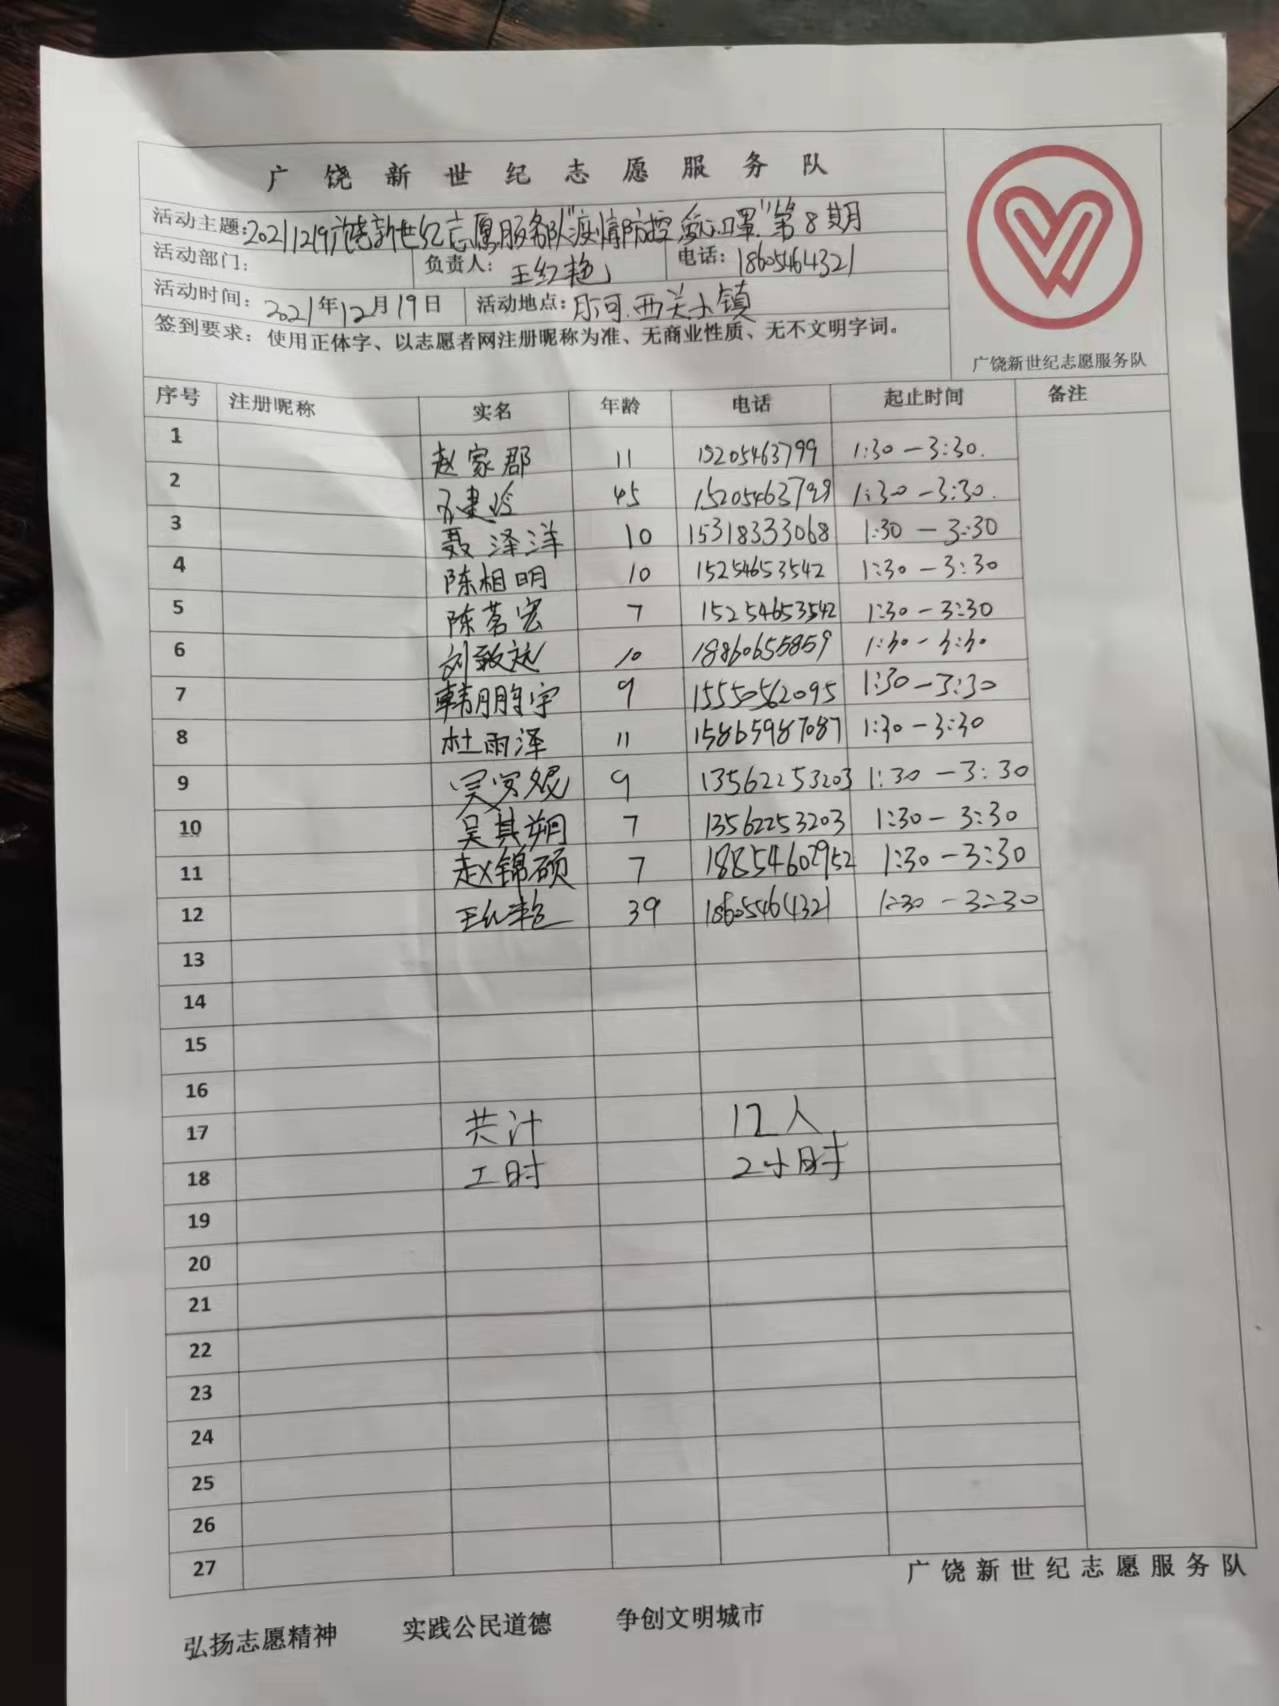 广饶新世纪志愿服务队
活动主题:20211219广饶新世纪志愿服务队"疫情防控 爱心口罩"第8期
活动部门: 负责人:王红艳 电话:18605464321
活动时间:2021年12月19日 活动地点:乐可.西关小镇
签到要求:使用正体字、以志愿者网注册昵称为准、无商业性质、无不文明字词。
广饶新世纪志愿服务队
序号 注册昵称 实名 年龄 电话 起止时间 备注
1 赵家郡 11 15205463799 1:30-3:30.
2 建玲 45 15205463799 1:30-3:30.
3 聂泽洋 10 15318333068 1:30-3:30
4 陈相明 10 15254653542 1:30-3:30
5 陈茗宏 7 15254653542 1:30-3:30
6 刘致远 10 18860655859 1:30-3:30
7 韩鹏宇 9 15550562095 1:30-3:30
8 杜雨泽 11 15865987087 1:30-3:30
9 吴 9 13562253203 1:30-3:30
10 吴其朔 7 13562253203 1:30-3:30
11 赵锦硕 7 18854602952 1:30-3:30
12 王红艳 39 18605464321 1:30-3:30
13
14
15
16
17 共计 12人
18 工时 2小时
19
20
21
22
23
24
25
26
27
广饶新世纪志愿服务队
弘扬志愿精神 实践公民道德 争创文明城市